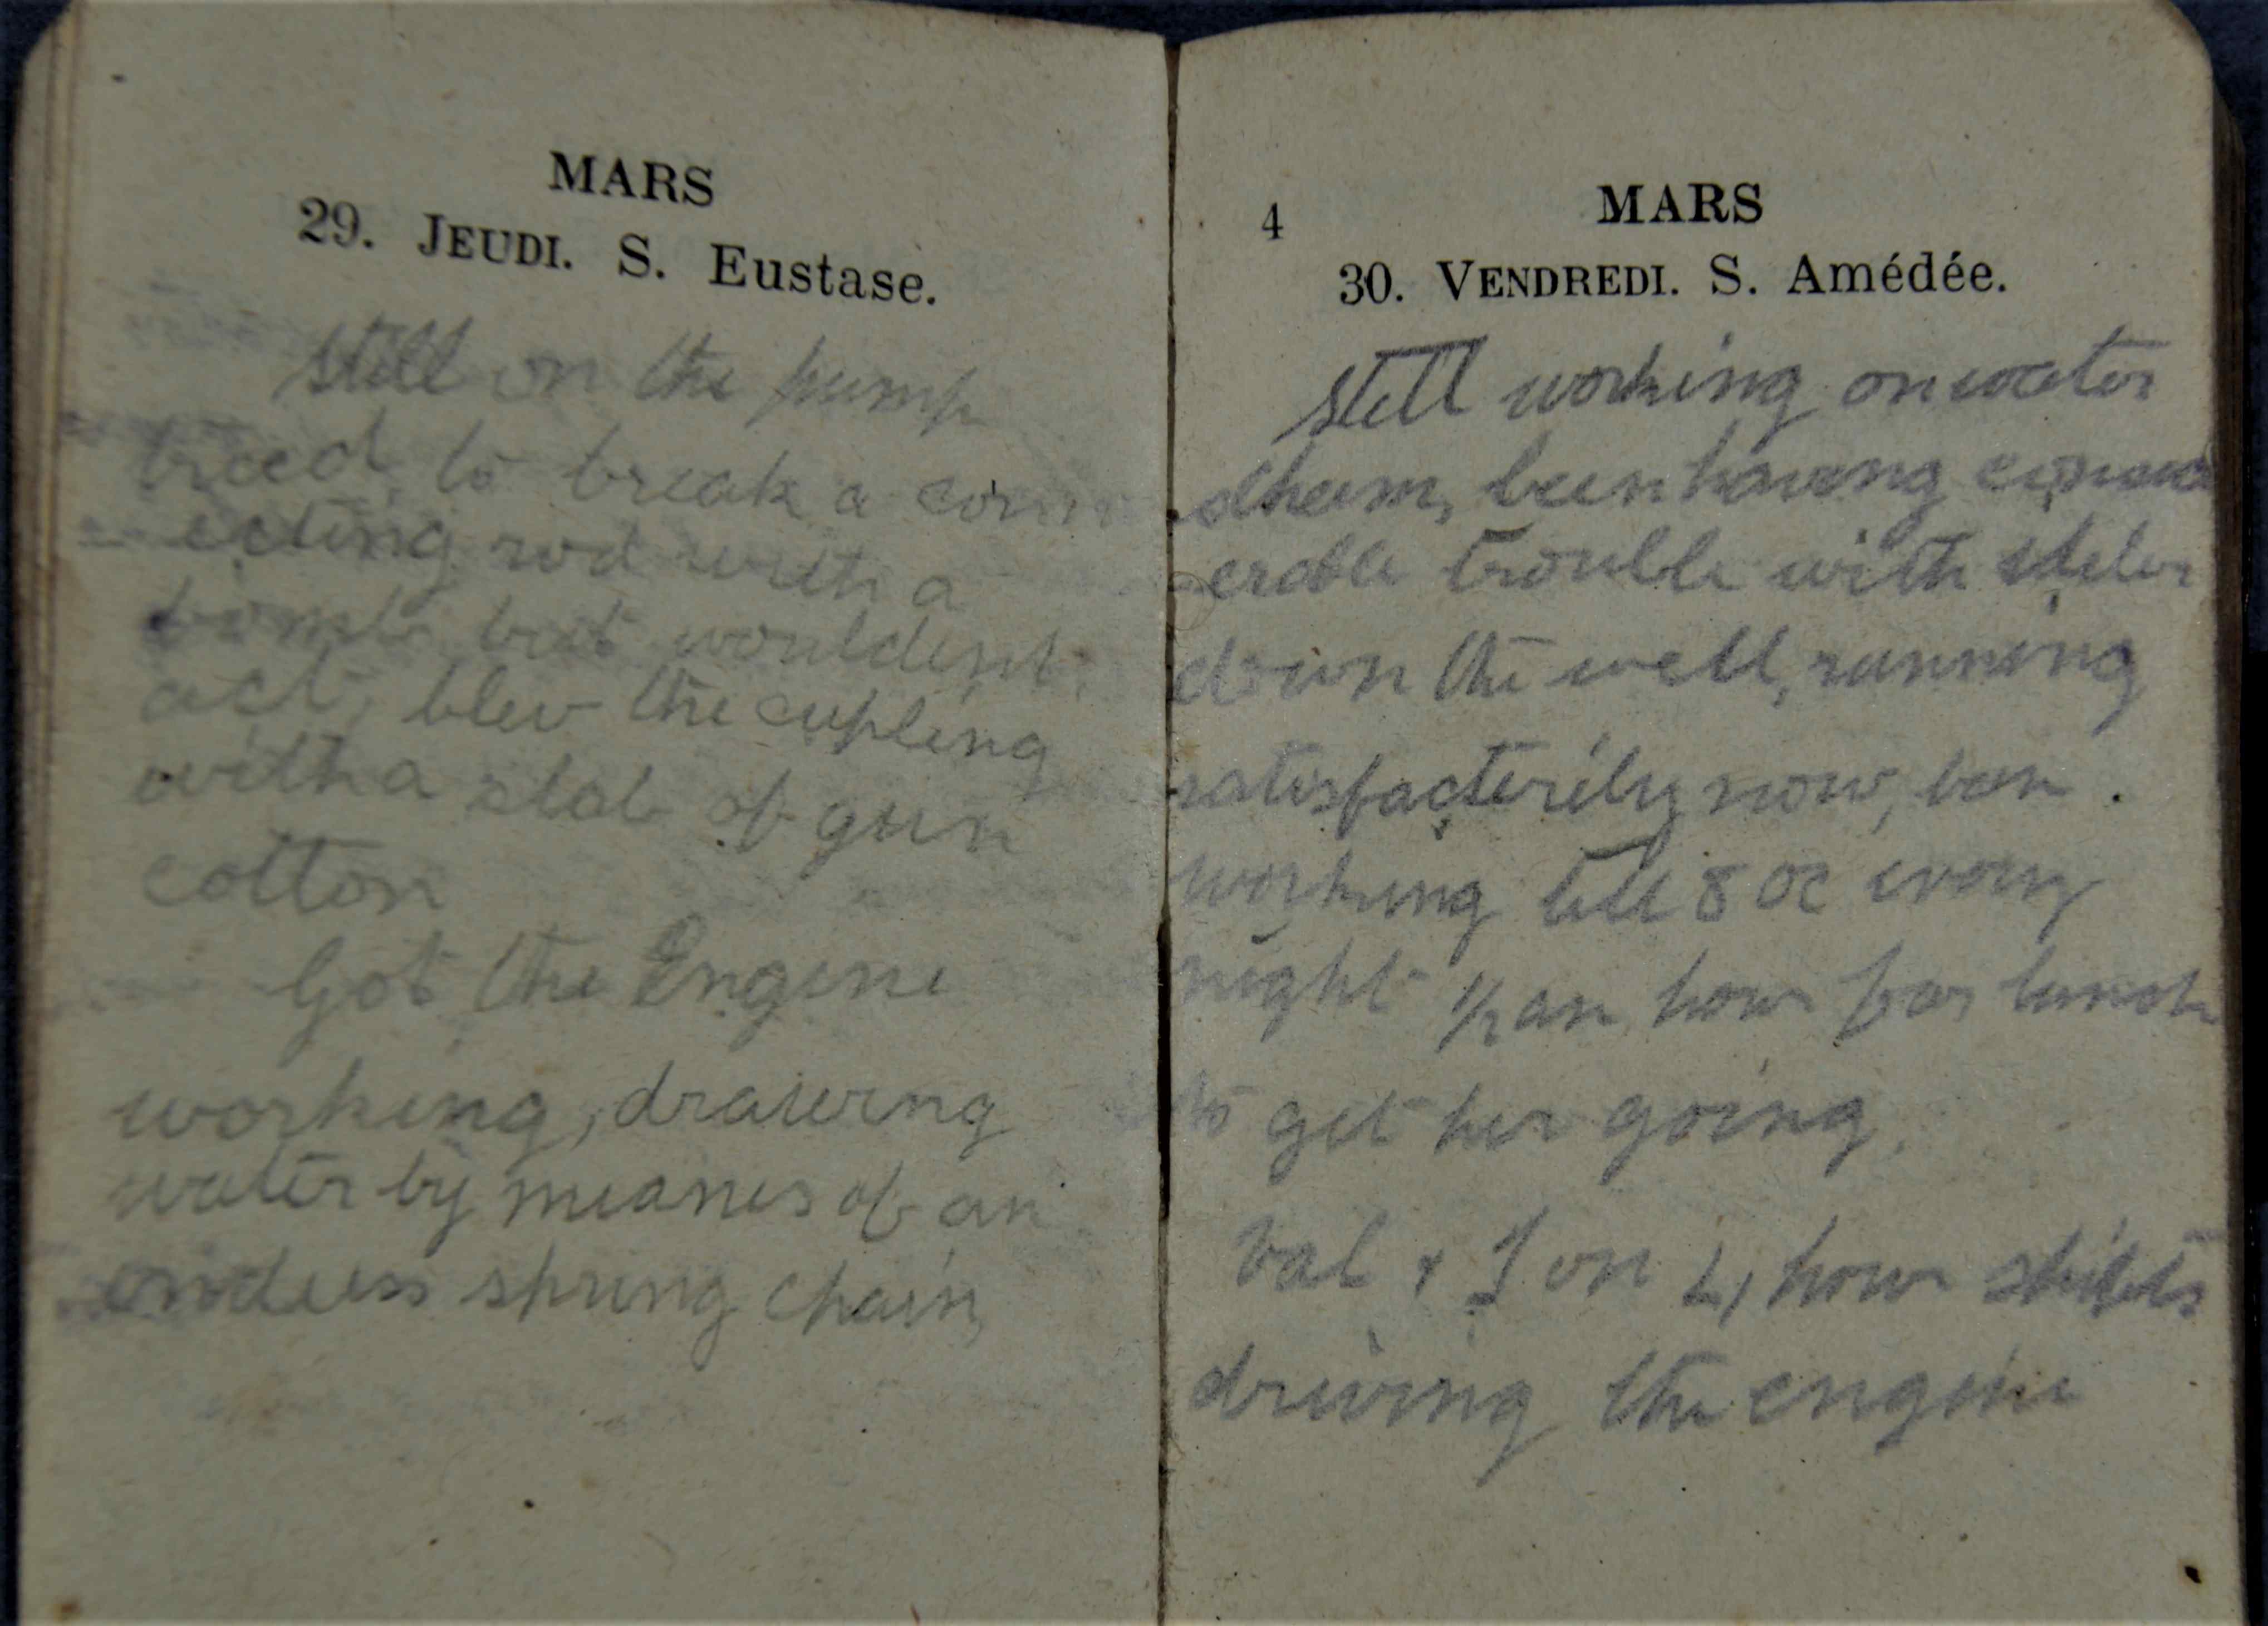 MARS
29. JEUDI. S. Eustase.
Still on the pump
tried to break a conn
- ecting rod with a
bomb but wouldent
act, blew the cupling
with a slab of gun
cotton
Got the Engine
working, drawing
water by meanes of an
endless spring chain,
4
MARS
30. VENDREDI. S. Amédée.
Still working on water
been having
erable trouble with
down the well, running
satisfacterily now, ben
working till 8 oc every
night ½ an hour for lunch
to get her going.
Val + I on 4 hour shifts
driving the engine